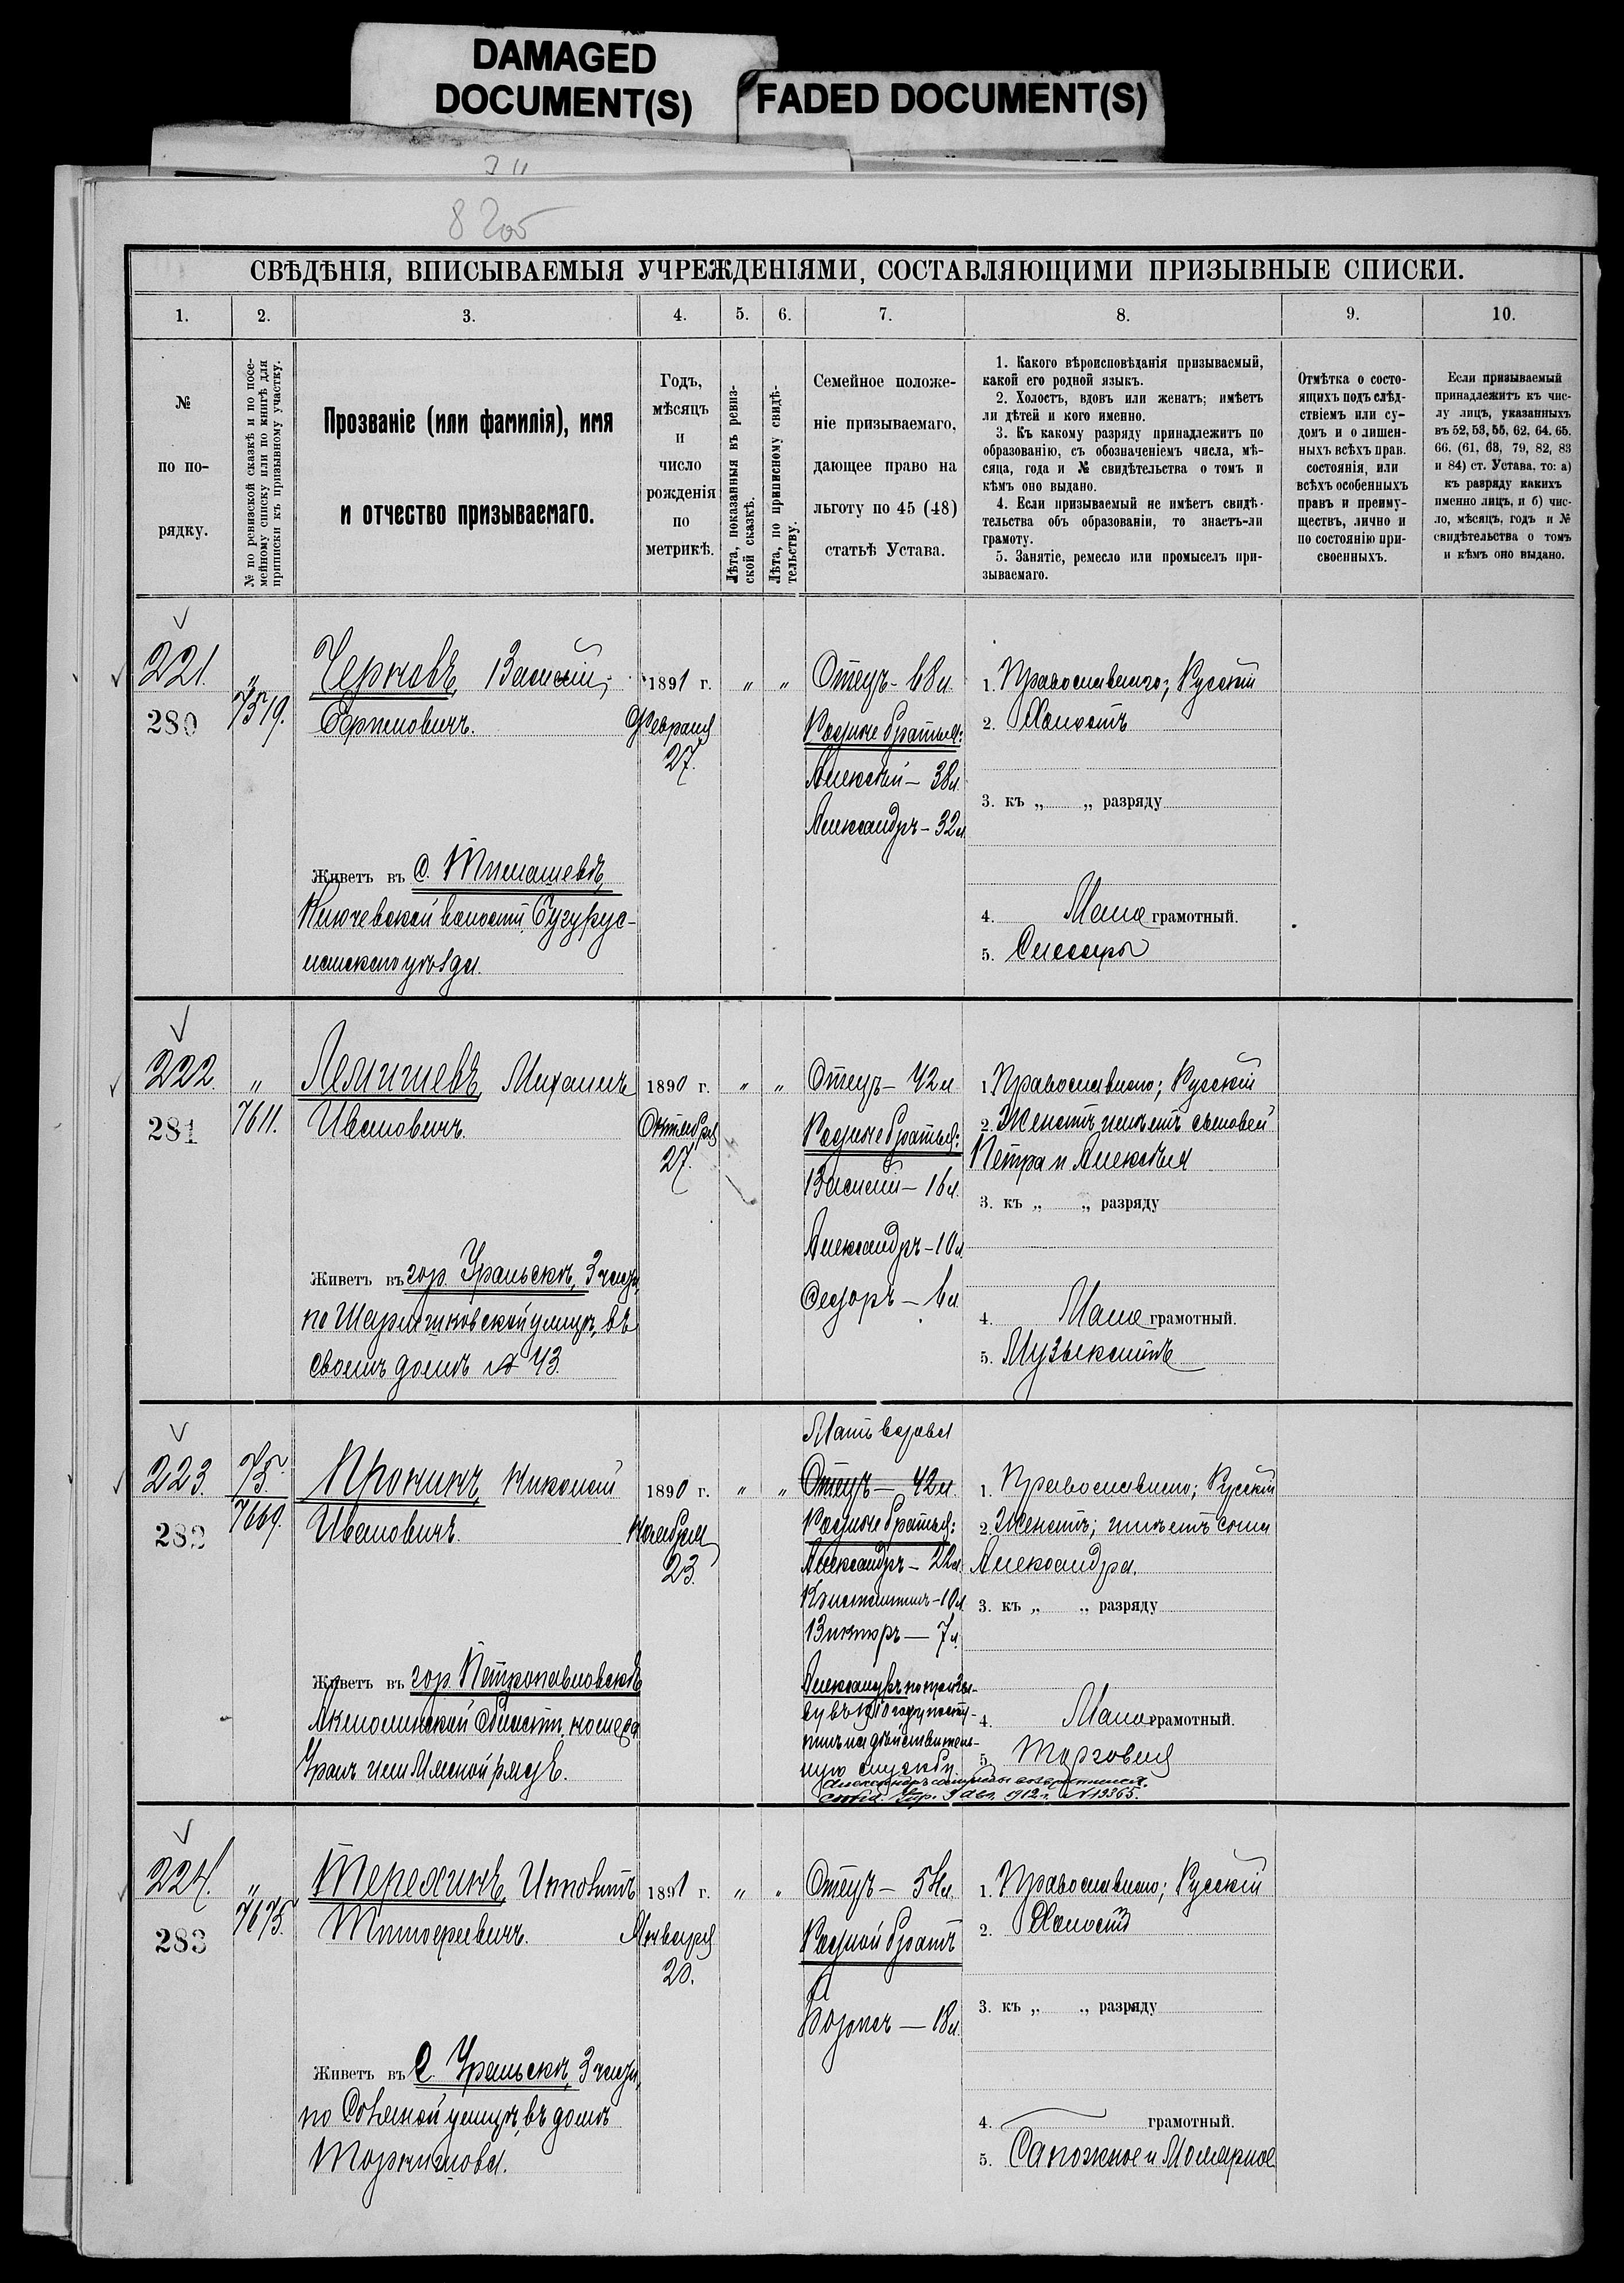 DAMAGED
DOCUMENT(S)
FADED DOCUMENT(S)
СВѢДѢНІЯ, ВПИСЫВАЕМЫЯ УЧРЕЖДЕНІЯМИ, СОСТАВЛЯЮЩИМИ ПРИЗЫВНЫЕ СПИСКИ.
1. 2. 3. 4. 5. 6. 7. 8. 9. 10.
№
по по-
рядку.
№ по ревизской сказкѣ и по посе-
мейному списку или по книгѣ для
приписки къ призывному участку.
Прозваніе (или фамилія), имя
и отчество призываемаго.
Годъ,
мѣсяцъ
и
число
рожденія
по
метрикѣ.
Лѣта, показанныя въ ревиз-
ской сказкѣ.
Лѣта, по приписному свидѣ-
тельству.
Семейное положе-
ніе призываемаго,
дающее право на
льготу по 45 (48)
статьѣ Устава.
1. Какого вѣроисповѣданія призываемый,
какой его родной языкъ.
2. Холостъ, вдовъ или женатъ; имѣетъ
ли дѣтей и кого именно.
3. Къ какому разряду принадлежитъ по
образованію, съ обозначеніемъ числа, мѣ-
сяца, года и № свидѣтельства о томъ и
кѣмъ оно выдано.
4. Если призываемый не имѣетъ свидѣ-
тельства объ образованіи, то знаетъ-ли
грамоту.
5. Занятіе, ремесло или промыселъ при-
зываемаго.
Отмѣтка о состо-
ящихъ подъ слѣд-
ствіемъ или су-
домъ и о лишен-
ныхъ всѣхъ прав.
состоянія, или
всѣхъ особенныхъ
правъ и преиму-
ществъ, лично и
по состоянію при-
своенныхъ.
Если призываемый
принадлежитъ къ чис-
лу лицъ, указанныхъ
въ 52, 53, 55, 62, 64, 65.
66. (61, 63, 79, 82, 83
и 84) ст. Устава, то: а)
къ разряду какихъ
именно лицъ, и б) чис-
ло, мѣсяцъ, годъ и №
свидѣтельства о томъ
и кѣмъ оно выдано.
221.
280
" 7519.
Черновъ Василій
Сергѣевичъ.
1891 г.
Февраля
27.
" "
Отецъ - 68 л.
Родные братья:
Алексѣй - 38 л.
Александръ - 32 л.
1. Православнаго; Русскій
2. Холостъ
3. къ „ „ разряду
4. Мало грамотный.
5. Слесарь
Живетъ въ с. Тимашевѣ,
Ключевской волости, Бугурус-
ланскаго уѣзда.
222.
281
" 7611.
Лемишевъ Михаилъ
Ивановичъ.
1890 г.
Октября
27.
" "
Отецъ - 42 л.
Родные братья:
Василій - 16 л.
Александръ - 10 л.
Федоръ - 6 л.
1. Православнаго; Русскій
2. Женатъ имѣетъ сыновей
Петра и Алексѣя
3. къ „ „ разряду
4. Мало грамотный.
5. Музыкантъ
Живетъ въ гор. Уральскѣ, 3 части,
улицѣ, въ
своемъ домѣ № 43.
223.
282
75.
7669.
Пронинъ Николай
Ивановичъ.
1890 г.
Ноября
23.
" "
Мать вдова
Отецъ — 42 л.
Родные братья:
Александръ - 22 л.
Константинъ - 10 л.
Викторъ — 7 л.
Александръ по призы-
ву въ 1910 году посту-
пилъ на дѣйствитель-
ную службу.
1. Православнаго; Русскій
2. Женатъ; имѣетъ сына
Александра.
3. къ „ „ разряду
4. Мало грамотный.
5. Торговля
Живетъ въ гор. Петропавловскѣ
Акмолинской Области, номера
Урал или Мясной рядъ.
224.
283
" 7675.
Терехинъ Ипполитъ
Тимофеевичъ.
1891 г.
Января
20.
" "
Отецъ — 54 л.
Родной братъ
Борисъ — 18 л.
1. Православнаго; Русскій
2. Холостъ
3. къ „ „ разряду
4. грамотный.
5. Сапожное и Малярное
Живетъ въ г. Уральскѣ, 3 части,
по улицѣ, въ домѣ